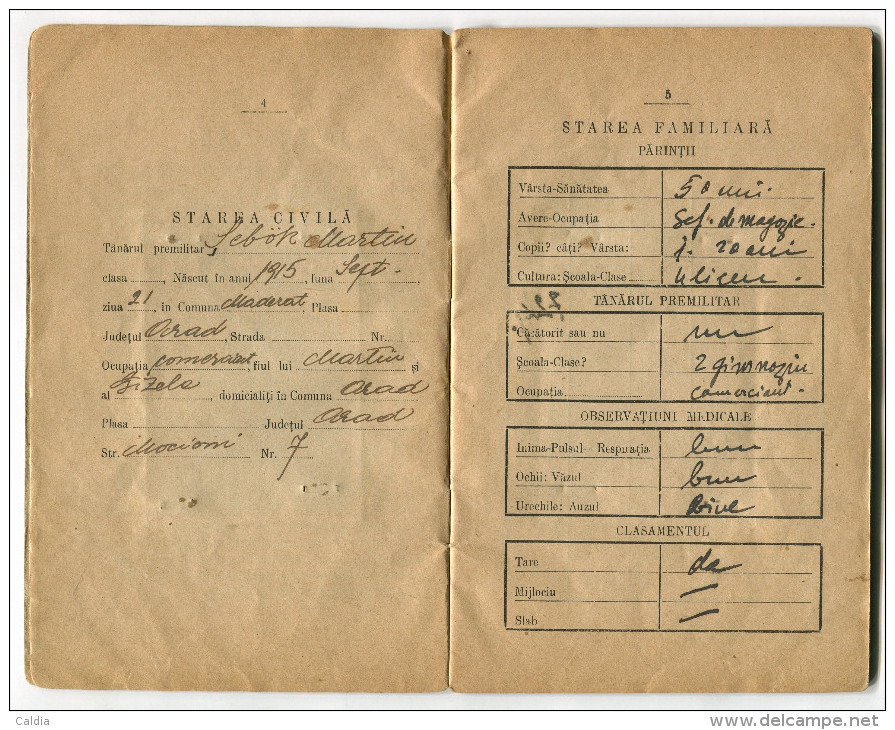 4
STAREA CIVILĂ
Tânărul premilitar Sebök Martin
clasa ........, Născut în anul 1915, luna Sept.
ziua 21, în Comuna Maderat, Plasa
Județul Arad, Strada ........ Nr.
Ocupația comersant, fiul lui Martin și
al Gizela, domiciliați în Comuna Arad
Plasa ........ Județul Arad
Str. Mocioni Nr. 7
5
STAREA FAMILIARĂ
PĂRINȚII
Vârsta-Sănătatea 50 ani.
Avere-Ocupația Șef. de magazie.
Copii? câți? Vârsta: 1. 20 ani
Cultura: Școala-Clase 4 liceu.
TÂNĂRUL PREMILITAR
Căcătorit sau nu nu
Școala-Clase? 2 gimnaziu
Ocupația comerciant.
OBSERVAȚIUNI MEDICALE
Inima-Pulsul - Respirația bun
Ochii: Văzul bun
Urechile: Auzul bine
CLASAMENTUL
Tare da
Mijlociu —
Slab —
Caldia
www.delcampe.net